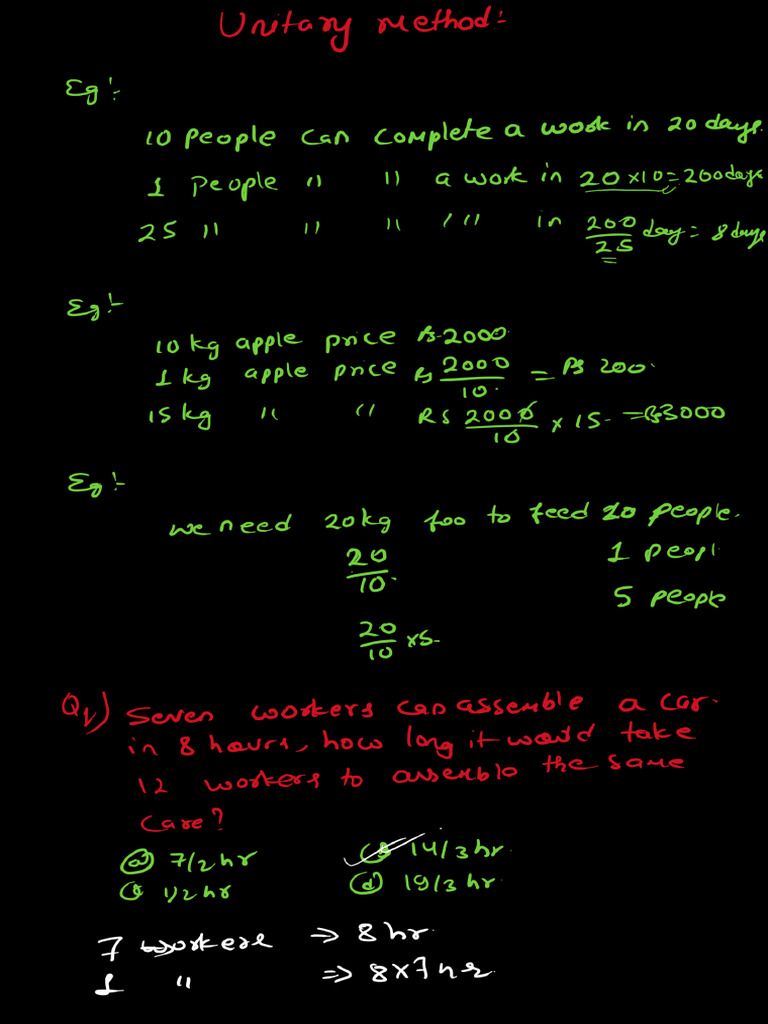 Unitary method:-
Eg:-
10 people can complete a work in 20 days.
1 people " " a work in 20 × 10 = 200 days
25 " " " " " in 200/25 day = 8 days
Eg:-
10 kg apple price Rs 2000
1 kg apple price Rs 2000/10 = Rs 200.
15 kg " " RS 2000/10 × 15 = Rs 3000
Eg:-
we need 20 kg foo to feed 10 people.
20/10. 1 peopl
5 people
20/10 × 5
Q1) Seven workers can assemble a car
in 8 hours, how long it would take
12 workers to assemble the same
care?
(a) 7/2 hr (b) 14/3 hr.
(c) 1/2 hr (d) 19/3 hr.
7 workers ⇒ 8 hr
1 " ⇒ 8×7 hr